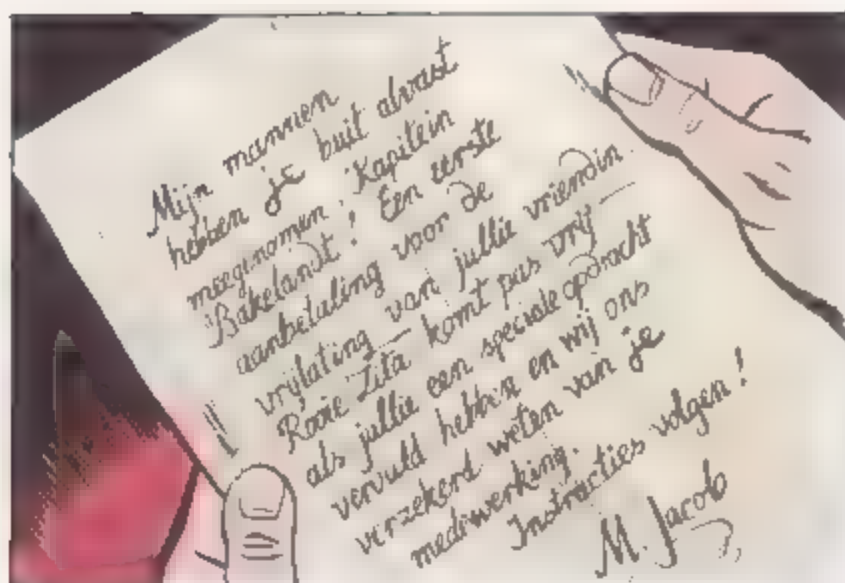 Mijn mannen
hebben je buit alvast
meegenomen, Kapitein
Bakelandt! Een eerste
aanbetaling voor de
vrijlating van jullie vriendin.
Rooie Zita komt pas vrij
als jullie een speciale opdracht
vervuld hebben en wij ons
verzekerd weten van je
medewerking.
Instructies volgen!
M. Jacob